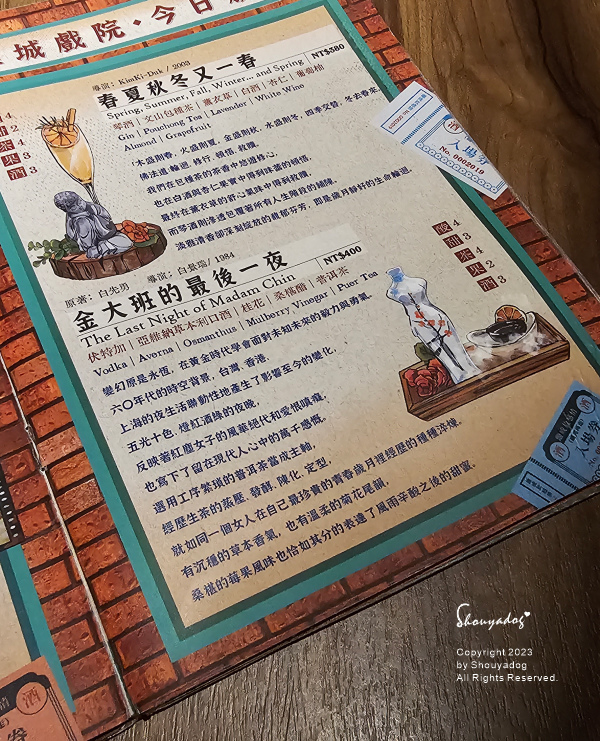 城戲院・今日
導演：KimKi-Duk / 2003
春夏秋冬又一春
NT$380
Spring, Summer, Fall, Winter... and Spring
琴酒 | 文山包種茶 | 薰衣草 | 白酒 | 杏仁 | 葡萄柚
Gin | Pouchong Tea | Lavender | White Wine
Almond | Grapefruit
木盛則春，火盛則夏，金盛則秋，水盛則冬，四季交替，冬去春來，
佛法道輪迴，修行，頓悟，救贖，
我們在包種茶的茶香中悠遊修心，
也在白酒與杏仁果實中得到味蕾的頓悟，
最終在薰衣草的舒心氣味中得到救贖，
而琴酒則滲透包覆著所有人生階段的鋪陳，
淡雅清香卻深刻綻放的馥郁芬芳，即是歲月靜好的生命輪迴。
酒
入場券
No. 0002019
4
2
3
4
3
原著：白先勇　導演：白景瑞 / 1984
金大班的最後一夜
NT$400
The Last Night of Madam Chin
伏特加 | 亞維納草本利口酒 | 桂花 | 桑椹醋 | 普洱茶
Vodka | Averna | Osmanthus | Mulberry Vinegar | Puer Tea
酸 4
甜 3
茶 4
果 2
酒 3
變幻原是永恆，在黃金時代學會面對未知未來的毅力與勇氣。
六〇年代的時空背景，台灣，香港，
上海的夜生活聯動性地產生了影響至今的變化，
五光十色，燈紅酒綠的夜晚，
反映著紅塵女子的風華絕代和愛恨嗔癡，
也寫下了留在現代人心中的萬千感慨，
選用工序繁瑣的普洱茶當成主軸，
經歷生茶的蒸壓，發酵，陳化，定型，
就如同一個女人在自己最珍貴的青春歲月裡經歷的種種淬煉，
有沉穩的草本香氣，也有溫柔的菊花尾韻，
桑椹的莓果風味也恰如其分的表達了風雨辛酸之後的甜蜜。
酒
入場券
酒
Shouyadog
Copyright 2023
by Shouyadog
All Rights Reserved.